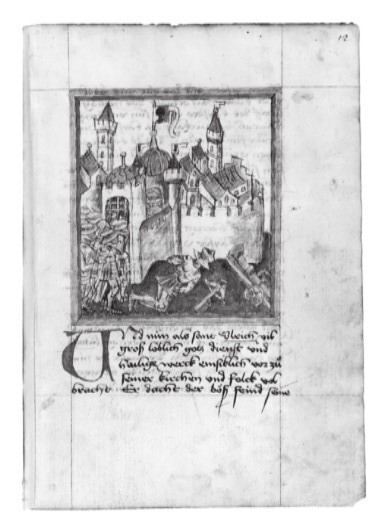 12
Und nun als sant Ulrich vil
groß löblich gots dienst und
hailige werck emsiklich vor zů
seiner kirchen und folck vol
bracht Er dacht der böß feind seine